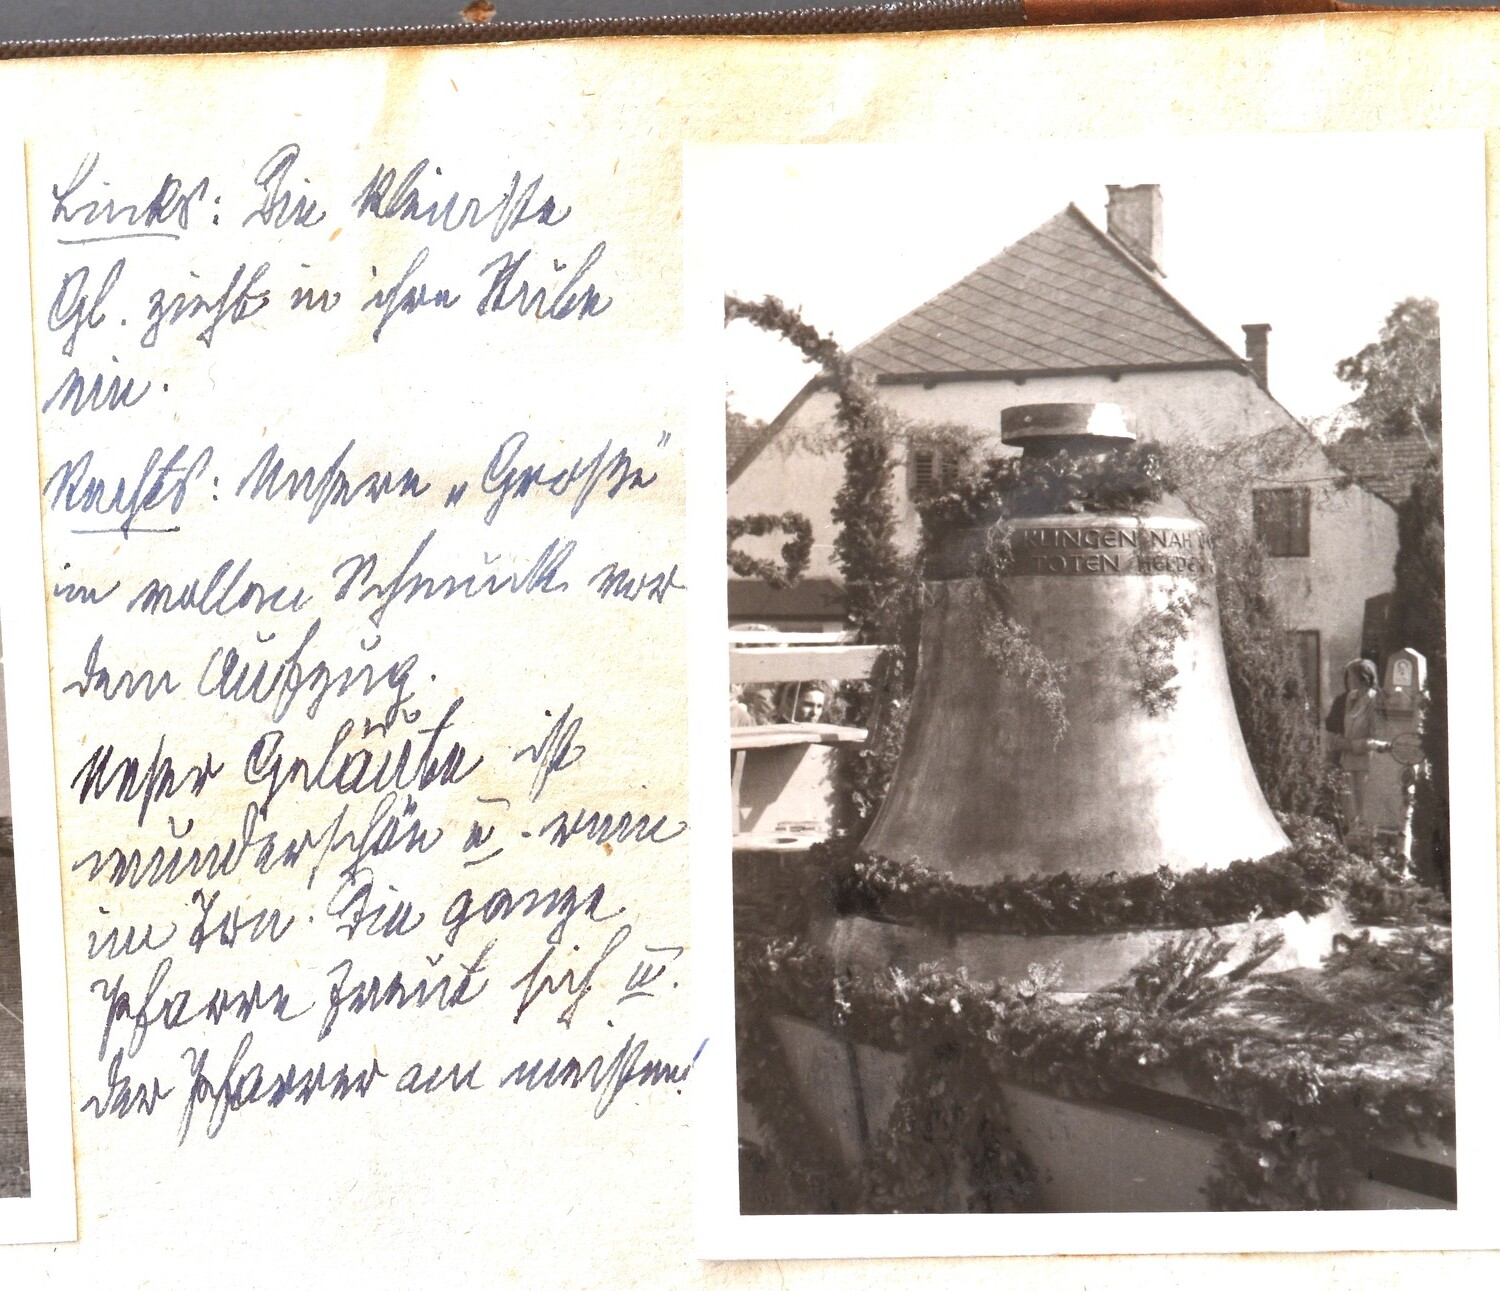 Links: Die kleinste
Gl. zieht in ihre Stube
ein.
Rechts: Unsere „Große"
im vollen Schmuck vor
dem Aufzug.
Unser Geläute ist
wunderschön u. rein
im Ton. Die ganze
Pfarre freut sich u.
der Pfarrer am meisten!
KLINGEN NAH
TOTEN HELDEN